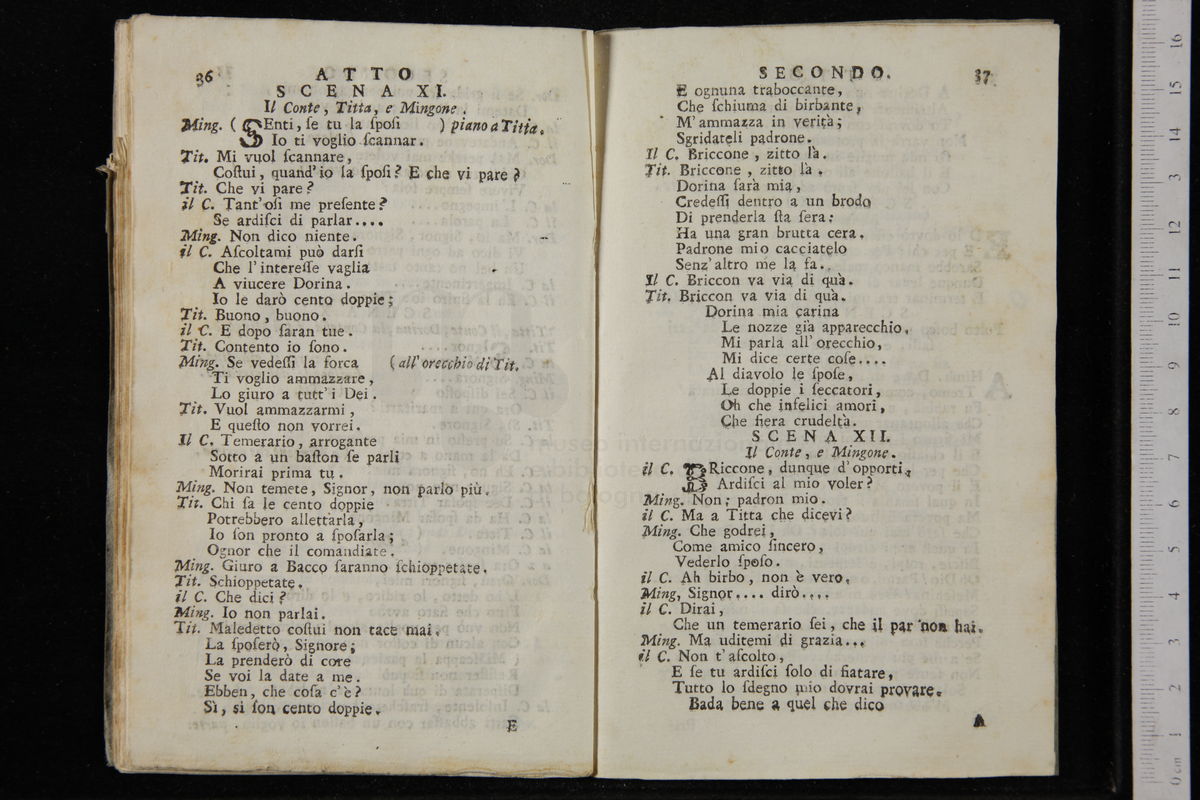 36 ATTO
SCENA XI.
Il Conte, Titta, e Mingone.
Ming. ( SEnti, ſe tu la ſpoſi ) piano a Titta.
Io ti voglio ſcannar.
Tit. Mi vuol ſcannare,
Coſtui, quand' io la ſpoſi? E che vi pare?
Tit. Che vi pare?
il C. Tant' oſi me preſente?
Se ardiſci di parlar....
Ming. Non dico niente.
il C. Aſcoltami può darſi
Che l'intereſſe vaglia
A viucere Dorina.
Io le darò cento doppie;
Tit. Buono, buono.
il C. E dopo ſaran tue.
Tit. Contento io ſono.
Ming. Se vedeſſi la forca ( all' orecchio di Tit.
Ti voglio ammazzare,
Lo giuro a tutt' i Dei.
Tit. Vuol ammazzarmi,
E queſto non vorrei.
Il C. Temerario, arrogante
Sotto a un baſton ſe parli
Morirai prima tu.
Ming. Non temete, Signor, non parlo più.
Tit. Chi ſa le cento doppie
Potrebbero allettarla,
Io ſon pronto a ſpoſarla;
Ognor che il comandiate.
Ming. Giuro a Bacco ſaranno ſchioppetate.
Tit. Schioppetate.
il C. Che dici?
Ming. Io non parlai.
Tit. Maledetto coſtui non tace mai.
La ſpoſerò, Signore;
La prenderò di core
Se voi la date a me.
Ebben, che coſa c'è?
Sì, sì ſon cento doppie.
E
SECONDO. 37
E ognuna traboccante,
Che ſchiuma di birbante,
M'ammazza in verità;
Sgridateli padrone.
Il C. Briccone, zitto là.
Tit. Briccone, zitto là.
Dorina ſarà mia,
Credeſſi dentro a un brodo
Di prenderla ſta ſera:
Ha una gran brutta cera.
Padrone mio cacciatelo
Senz' altro me la fa.
Il C. Briccon va via di quà.
Tit. Briccon va via di quà.
Dorina mia carina
Le nozze già apparecchio,
Mi parla all' orecchio,
Mi dice certe coſe....
Al diavolo le ſpoſe,
Le doppie i ſeccatori,
Oh che infelici amori,
Che fiera crudeltà.
SCENA XII.
Il Conte, e Mingone.
il C. BRiccone, dunque d'opporti,
Ardiſci al mio voler?
Ming. Non; padron mio.
il C. Ma a Titta che dicevi?
Ming. Che godrei,
Come amico ſincero,
Vederlo ſpoſo.
il C. Ah birbo, non è vero.
Ming, Signor.... dirò....
il C. Dirai,
Che un temerario ſei, che il par non hai.
Ming. Ma uditemi di grazia...
il C. Non t'aſcolto,
E ſe tu ardiſci ſolo di fiatare,
Tutto lo ſdegno mio dovrai provare.
Bada bene a quel che dico
A